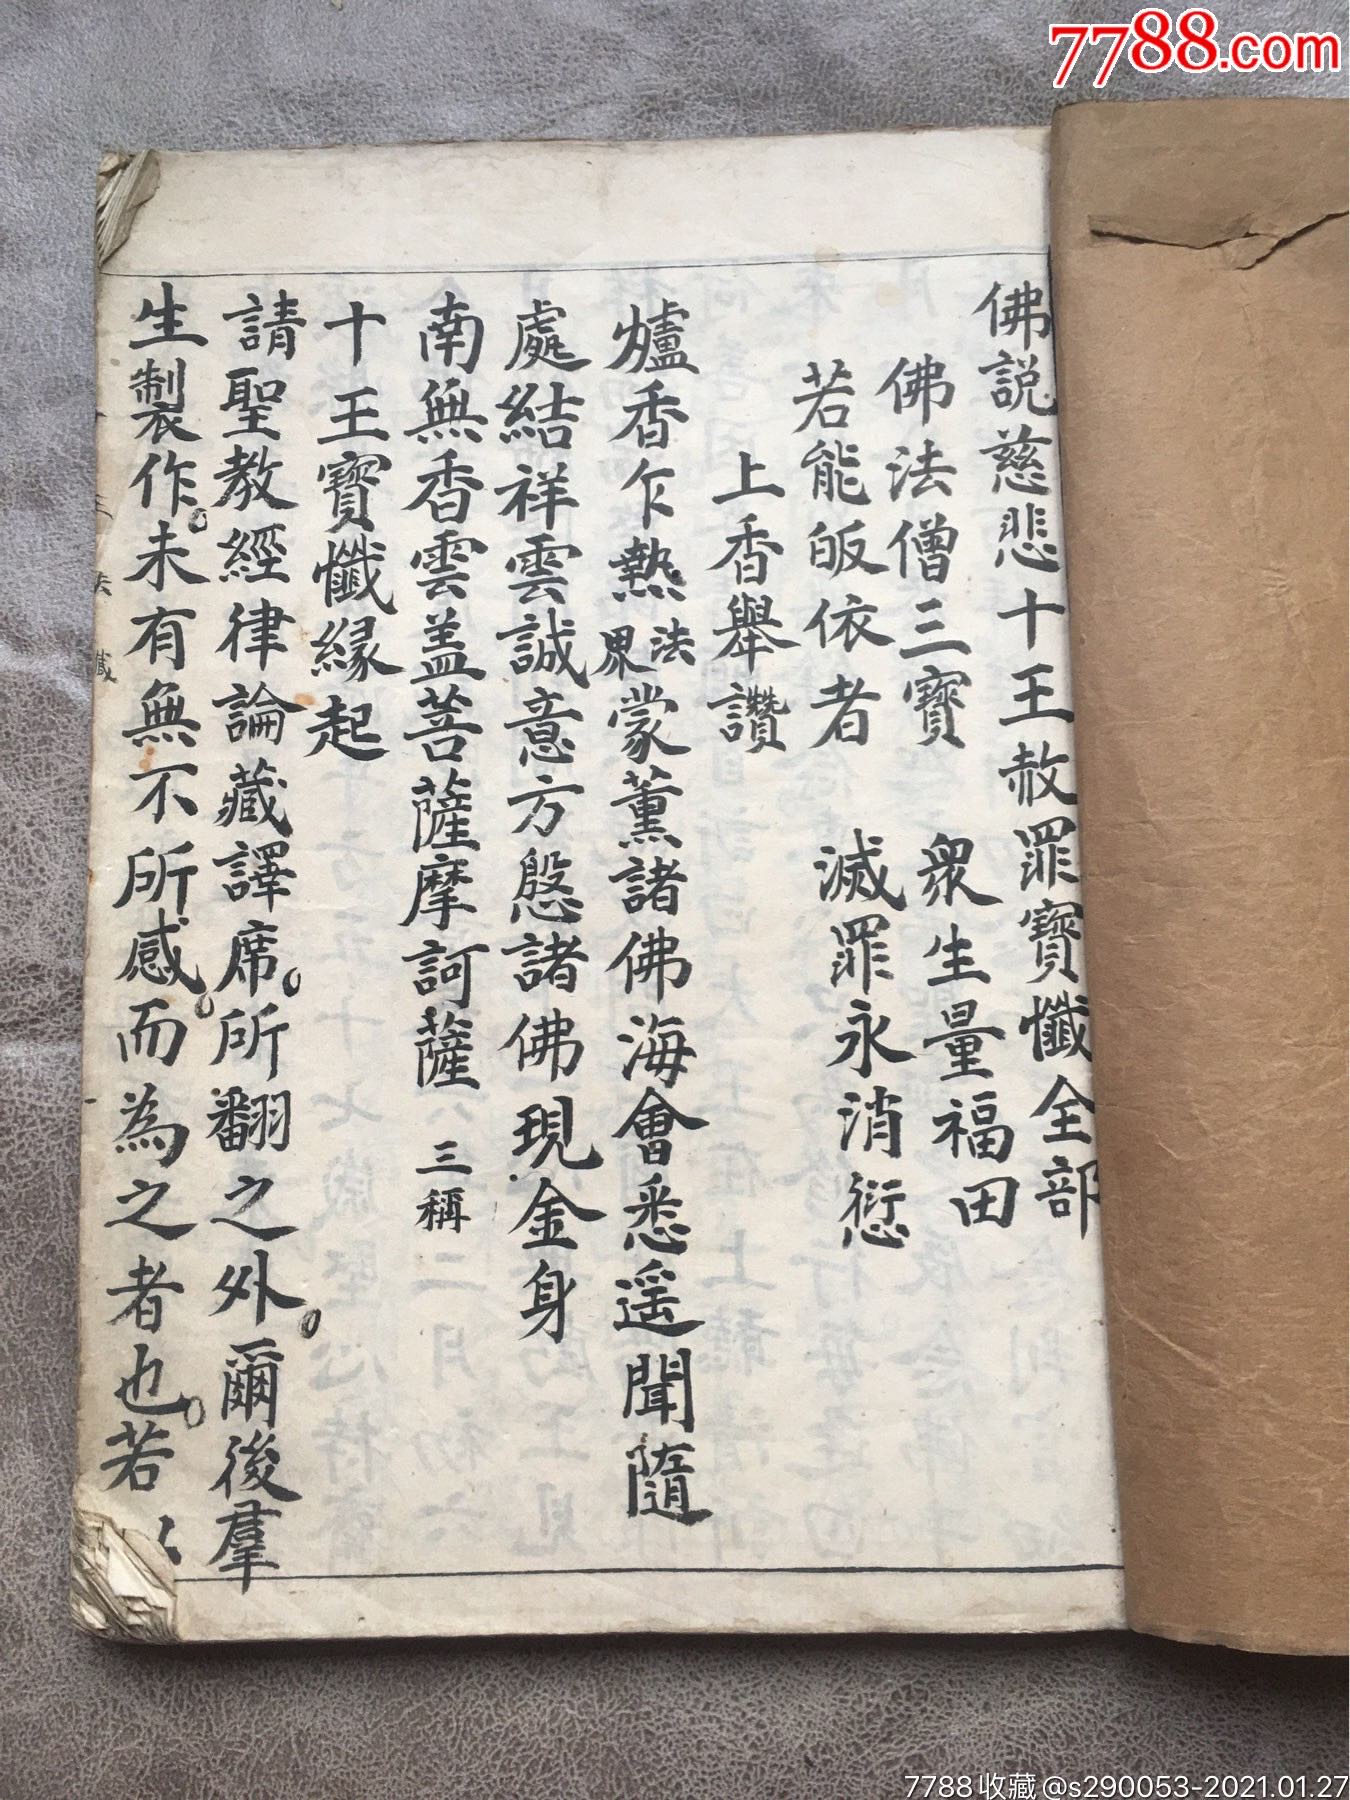 7788.com
佛説慈悲十王赦罪寶懺全部
佛法僧三寶 衆生量福田
若能皈依者 滅罪永消愆
上香舉讚
爐香乍熱法界蒙薰諸佛海會悉遥聞隨
處結祥雲誠意方慇諸佛現金身
南無香雲盖菩薩摩訶薩 三稱
十王寶懺緣起
請聖教經律論藏譯席。所翻之外。爾後羣
生製作。未有無不所感。而為之者也。若以
7788收藏@s290053-2021.01.27